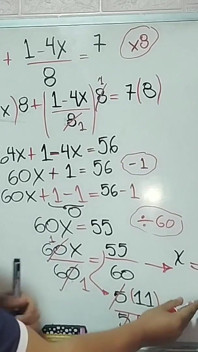 + 1-4x/8 = 7 (x8)
x)8 + (1-4x/8)8 = 7(8)
64x+1-4x = 56
60x + 1 = 56 (-1)
60x + 1 - 1 = 56-1
0
60x = 55 (÷ 60)
60x/60 = 55/60 → x =
5(11)